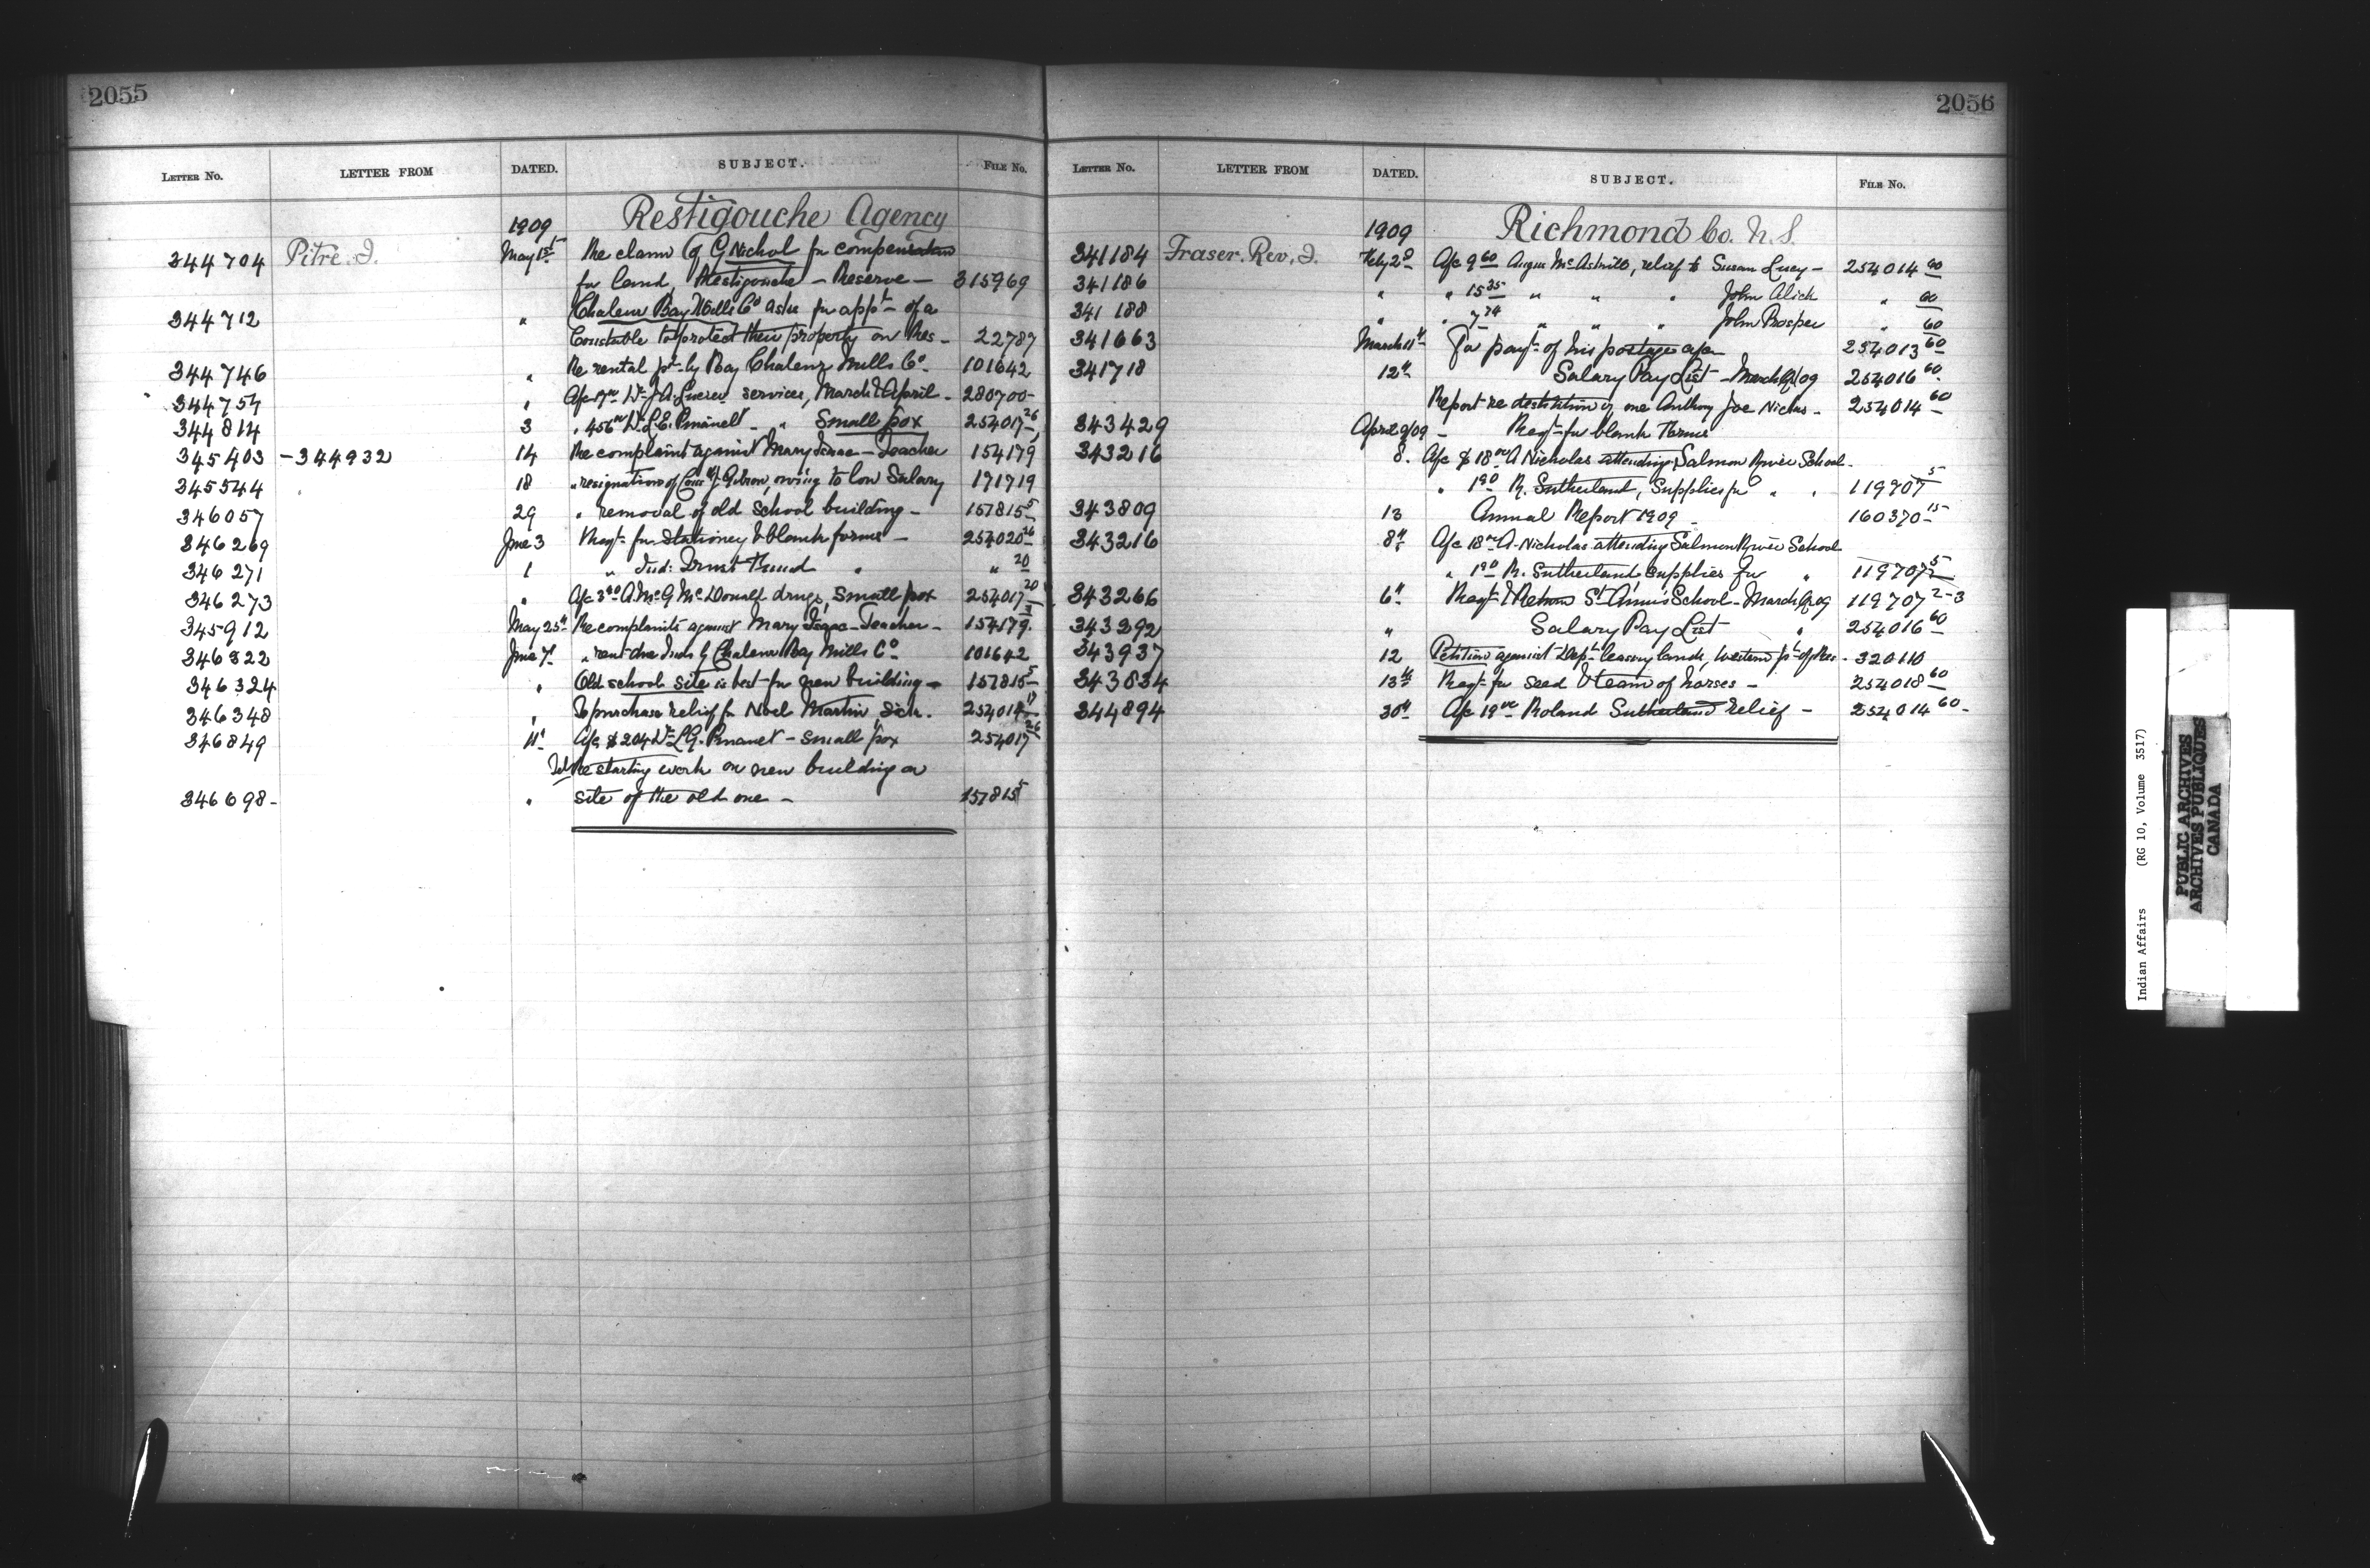 2055
LETTER NO. LETTER FROM DATED. SUBJECT. FILE NO.
1909 Restigouche Agency
344704 Pitre. J. May 1st Re claim of G Nichol for compensation
for land, Restigouche - Reserve - 315969
344712 " Chaleur Bay Mills Co asks for appt - of a
Constable to protect their property on Res - 22787
344746 " Re rental pt by Bay Chaleur Mills Co - 101642
344754 " A/c Dr J. A. services, March & April - 280700-
344814 3 " 456 Dr L. E. Pinault - " Small pox 254017 26
345403 - 344932 14 Re complaint against Mary Isaac - Teacher 154179
345544 18 " resignation of owing to low Salary 171719
346057 29 " removal of old School building - 157815 5
346269 June 3 Reqt for Stationey & blank forms - 254020 26
346271 1 " Ind: Trust Fund " " 20
346273 " A/c A. McG McDonald drugs, Small pox 254017 20
345912 May 25th Re complaints against Mary Isaac - Teacher - 154179
346322 June 7 " rent due Inds by Chaleur Bay Mills Co - 101642
346324 " Old school site is best for new building - 157815 5
346348 " To purchase relief for Noel Martin Sick. 254014
346849 11 A/c $204 Dr L. G. Pinault - small pox 254017 26
Re starting work on new building on
346698 - " site of the old one - 157815 5
2056
LETTER NO. LETTER FROM DATED. SUBJECT. FILE NO.
1909 Richmond Co. N. S.
341184 Fraser. Rev. J. Feby A/c 9 60 Angus relief to Susan Lucy - 254014 60
341186 " " 15 35 " " " John Alick " 60
341188 " " 7 74 " " " John Prosper " 60
341663 March 11th For payt of his postage a/c 254013 60
341718 12th Salary Pay List - March Qr/09 254016 60
Report re destitution of one Anthony Joe Nicholas - 254014 60
343429 April 9/09 - Reqt for blank Forms
343216 8. A/c $18 00 A Nicholas attending Salmon River School -
" 1 90 R. Sutherland, Supplies for " " 119707 5
343809 13 Annual Report 1909 - 160370 - 15
343216 8th A/c 18 00 A. Nicholas attending Salmon River School
" 1 90 R. Sutherland supplies for " 119707 5
343266 6th Reqt & Return St. Ann's School - March Qr 09 119707 2-3
343292 " Salary Pay List " 254016 60
343937 12 Petition against Dept leasing lands, Western pt of Res - 320110
343834 13th Reqt for seed & team of horses - 254018 60
344894 30th A/c 19 00 Roland Sutherland relief - 254014 60 -
Indian Affairs (RG 10, Volume 3517)
PUBLIC ARCHIVES
ARCHIVES PUBLIQUES
CANADA